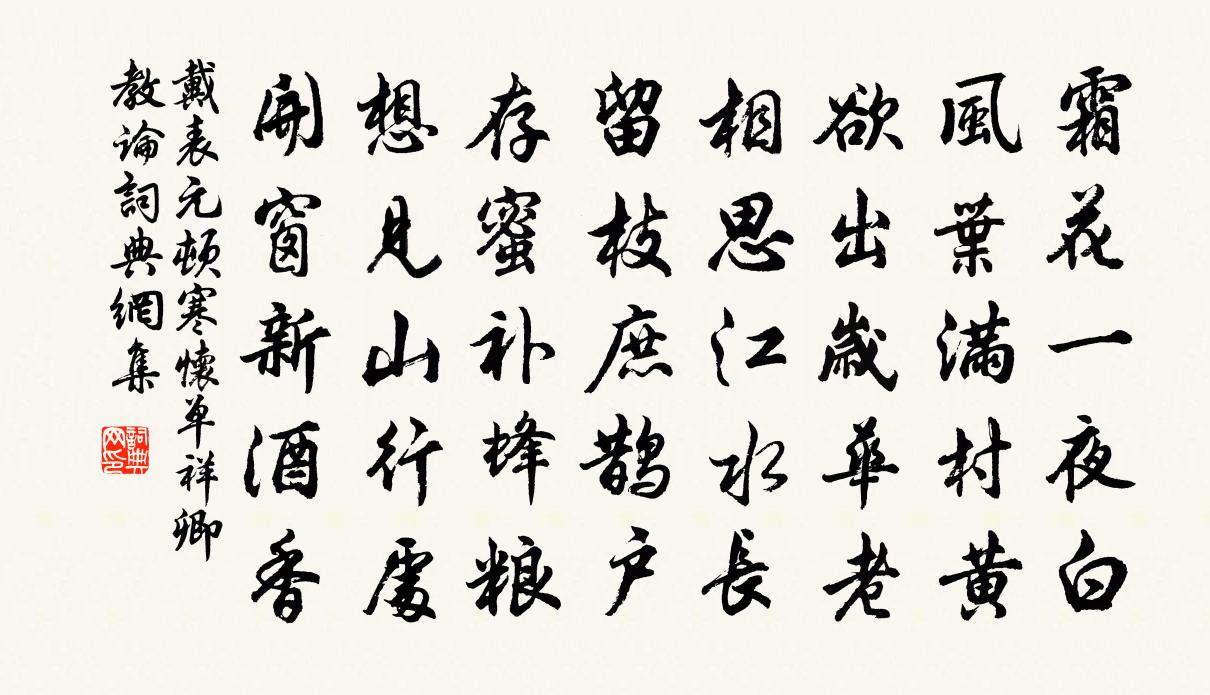 霜花一夜白
風葉滿村黃
欲出歲華老
相思江水長
留枝庶鵲户
存蜜补蜂粮
想見山行處
開窗新酒香
戴表元頓寒懷單祥卿
教諭詞典網集
詞典
网印